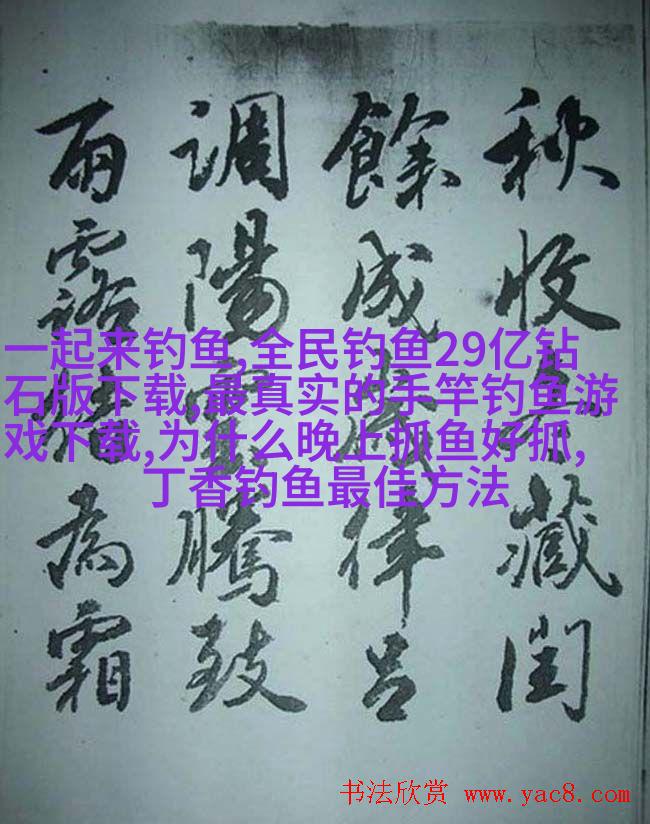 秋收冬藏閏
餘成歲律呂
調陽雲騰致
雨露結為霜
一起来钓鱼,全民钓鱼29亿钻
石版下载,最真实的手竿钓鱼游
戏下载,为什么晚上抓鱼好抓,
丁香钓鱼最佳方法
书法欣赏 www.yac8.com